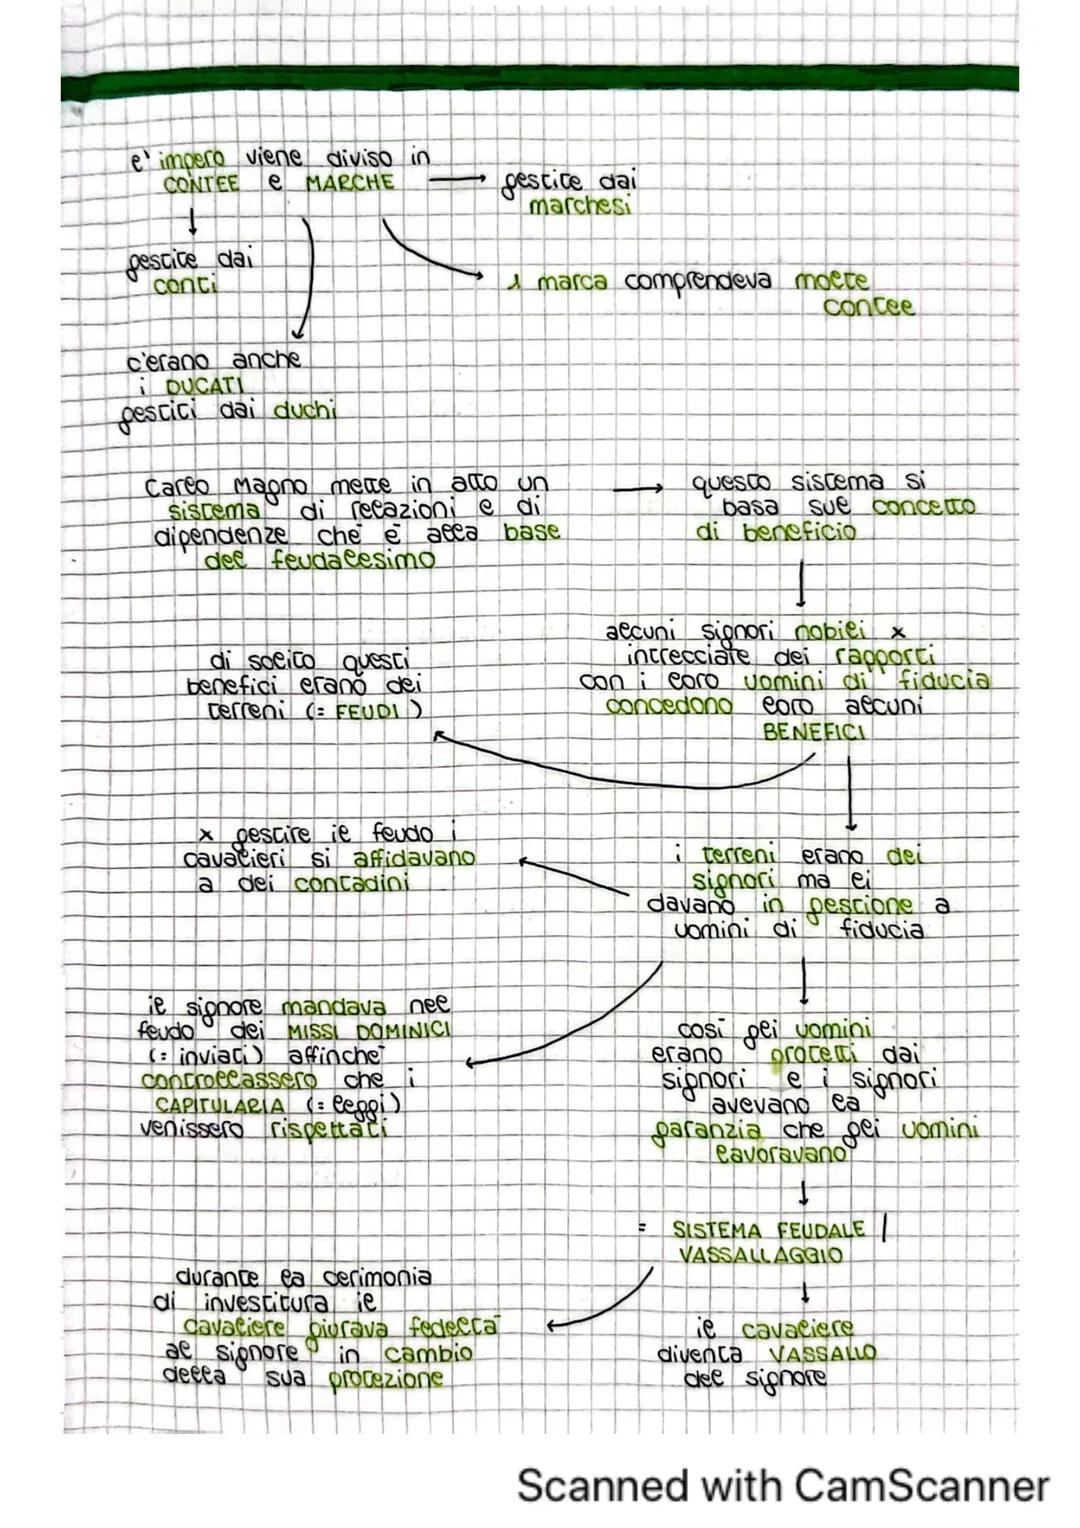 l'impero viene diviso in
CONTEE e MARCHE
gestite dai
marchesi
gestite dai
conti
1 marca comprendeva molte
contee
c'erano anche
i DUCATI
gestiti dai duchi
Carlo Magno mette in atto un
sistema di relazioni e di
dipendenze che è alla base
del feudalesimo
questo sistema si
basa sul concetto
di beneficio
alcuni signori nobili x
intrecciare dei rapporti
con i loro uomini di fiducia
concedono loro alcuni
BENEFICI
di solito questi
benefici erano dei
terreni (= FEUDI)
x gestire il feudo i
cavalieri si affidavano
a dei contadini
i terreni erano dei
signori ma li
davano in gestione a
uomini di fiducia
il signore mandava nel
feudo dei MISSI DOMINICI
(= inviati) affinché
controllassero che i
CAPITULARIA (= leggi)
venissero rispettati
così gli uomini
erano protetti dai
signori e i signori
avevano la
garanzia che gli uomini
lavoravano
= SISTEMA FEUDALE /
VASSALLAGGIO
durante la cerimonia
di investitura il
cavaliere giurava fedeltà
al signore in cambio
della sua protezione
il cavaliere
diventa VASSALLO
del signore
Scanned with CamScanner